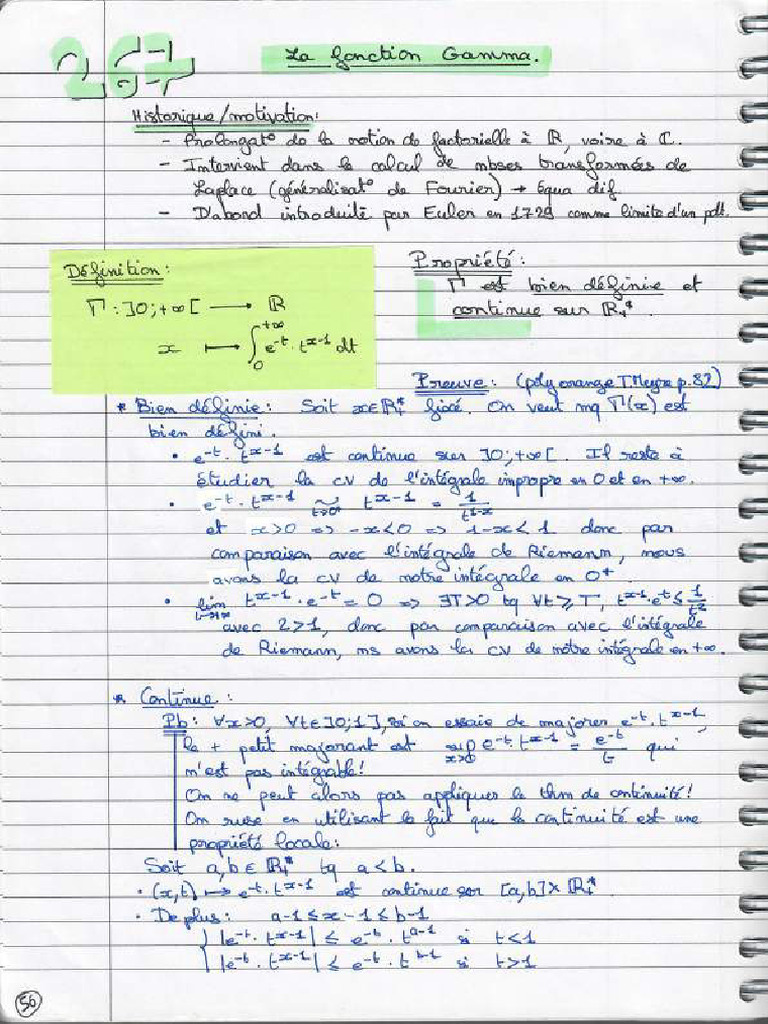 267
La fonction Gamma.
Historique/motivation:
- Prolongat° de la notion de factorielle à ℝ, voire à ℂ.
- Intervient dans le calcul de nbses transformées de
Laplace (généralisat° de Fourier) → équa dif
- D'abord introduite par Euler en 1729 comme limite d'un pdt.
Définition:
Γ : ]0;+∞[ ⟶ ℝ
x ⟼ ∫₀^{+∞} e^{-t} · t^{x-1} dt
Propriété:
Γ est bien définie et
continue sur ℝ₊*.
Preuve: (poly orange TMegy p.82)
* Bien définie: Soit x∈ℝ₊* fixé. On veut mq Γ(x) est
bien défini.
• e^{-t} · t^{x-1} est continue sur ]0;+∞[. Il reste à
étudier la cv de l'intégrale impropre en 0 et en +∞.
• e^{-t} · t^{x-1} ~_{t→0⁺} t^{x-1} = 1/t^{1-x}
et x>0 ⇒ -x<0 ⇒ 1-x<1 donc par
comparaison avec l'intégrale de Riemann, nous
avons la cv de notre intégrale en 0⁺.
• lim_{t→+∞} t^{x-1} · e^{-t} = 0 ⇒ ∃T>0 tq ∀t⩾T, t^{x-1} · e^{-t} ≤ 1/t²
avec 2>1, donc par comparaison avec l'intégrale
de Riemann, ns avons la cv de notre intégrale en +∞.
* Continue:
Pb: ∀x>0, ∀t∈]0;1], si on essaie de majorer e^{-t} · t^{x-1},
le + petit majorant est sup_{x>0} e^{-t} · t^{x-1} = e^{-t}/t qui
n'est pas intégrable!
On ne peut alors pas appliquer le thm de continuité!
On ruse en utilisant le fait que la continuité est une
propriété locale:
Soit a,b ∈ ℝ₊* tq a<b.
• (x,t) ⟼ e^{-t} · t^{x-1} est continue sur [a,b]×ℝ₊*
• De plus: a-1 ≤ x-1 ≤ b-1
|e^{-t} · t^{x-1}| ≤ e^{-t} · t^{a-1} si t<1
|e^{-t} · t^{x-1}| ≤ e^{-t} · t^{b-1} si t>1
56